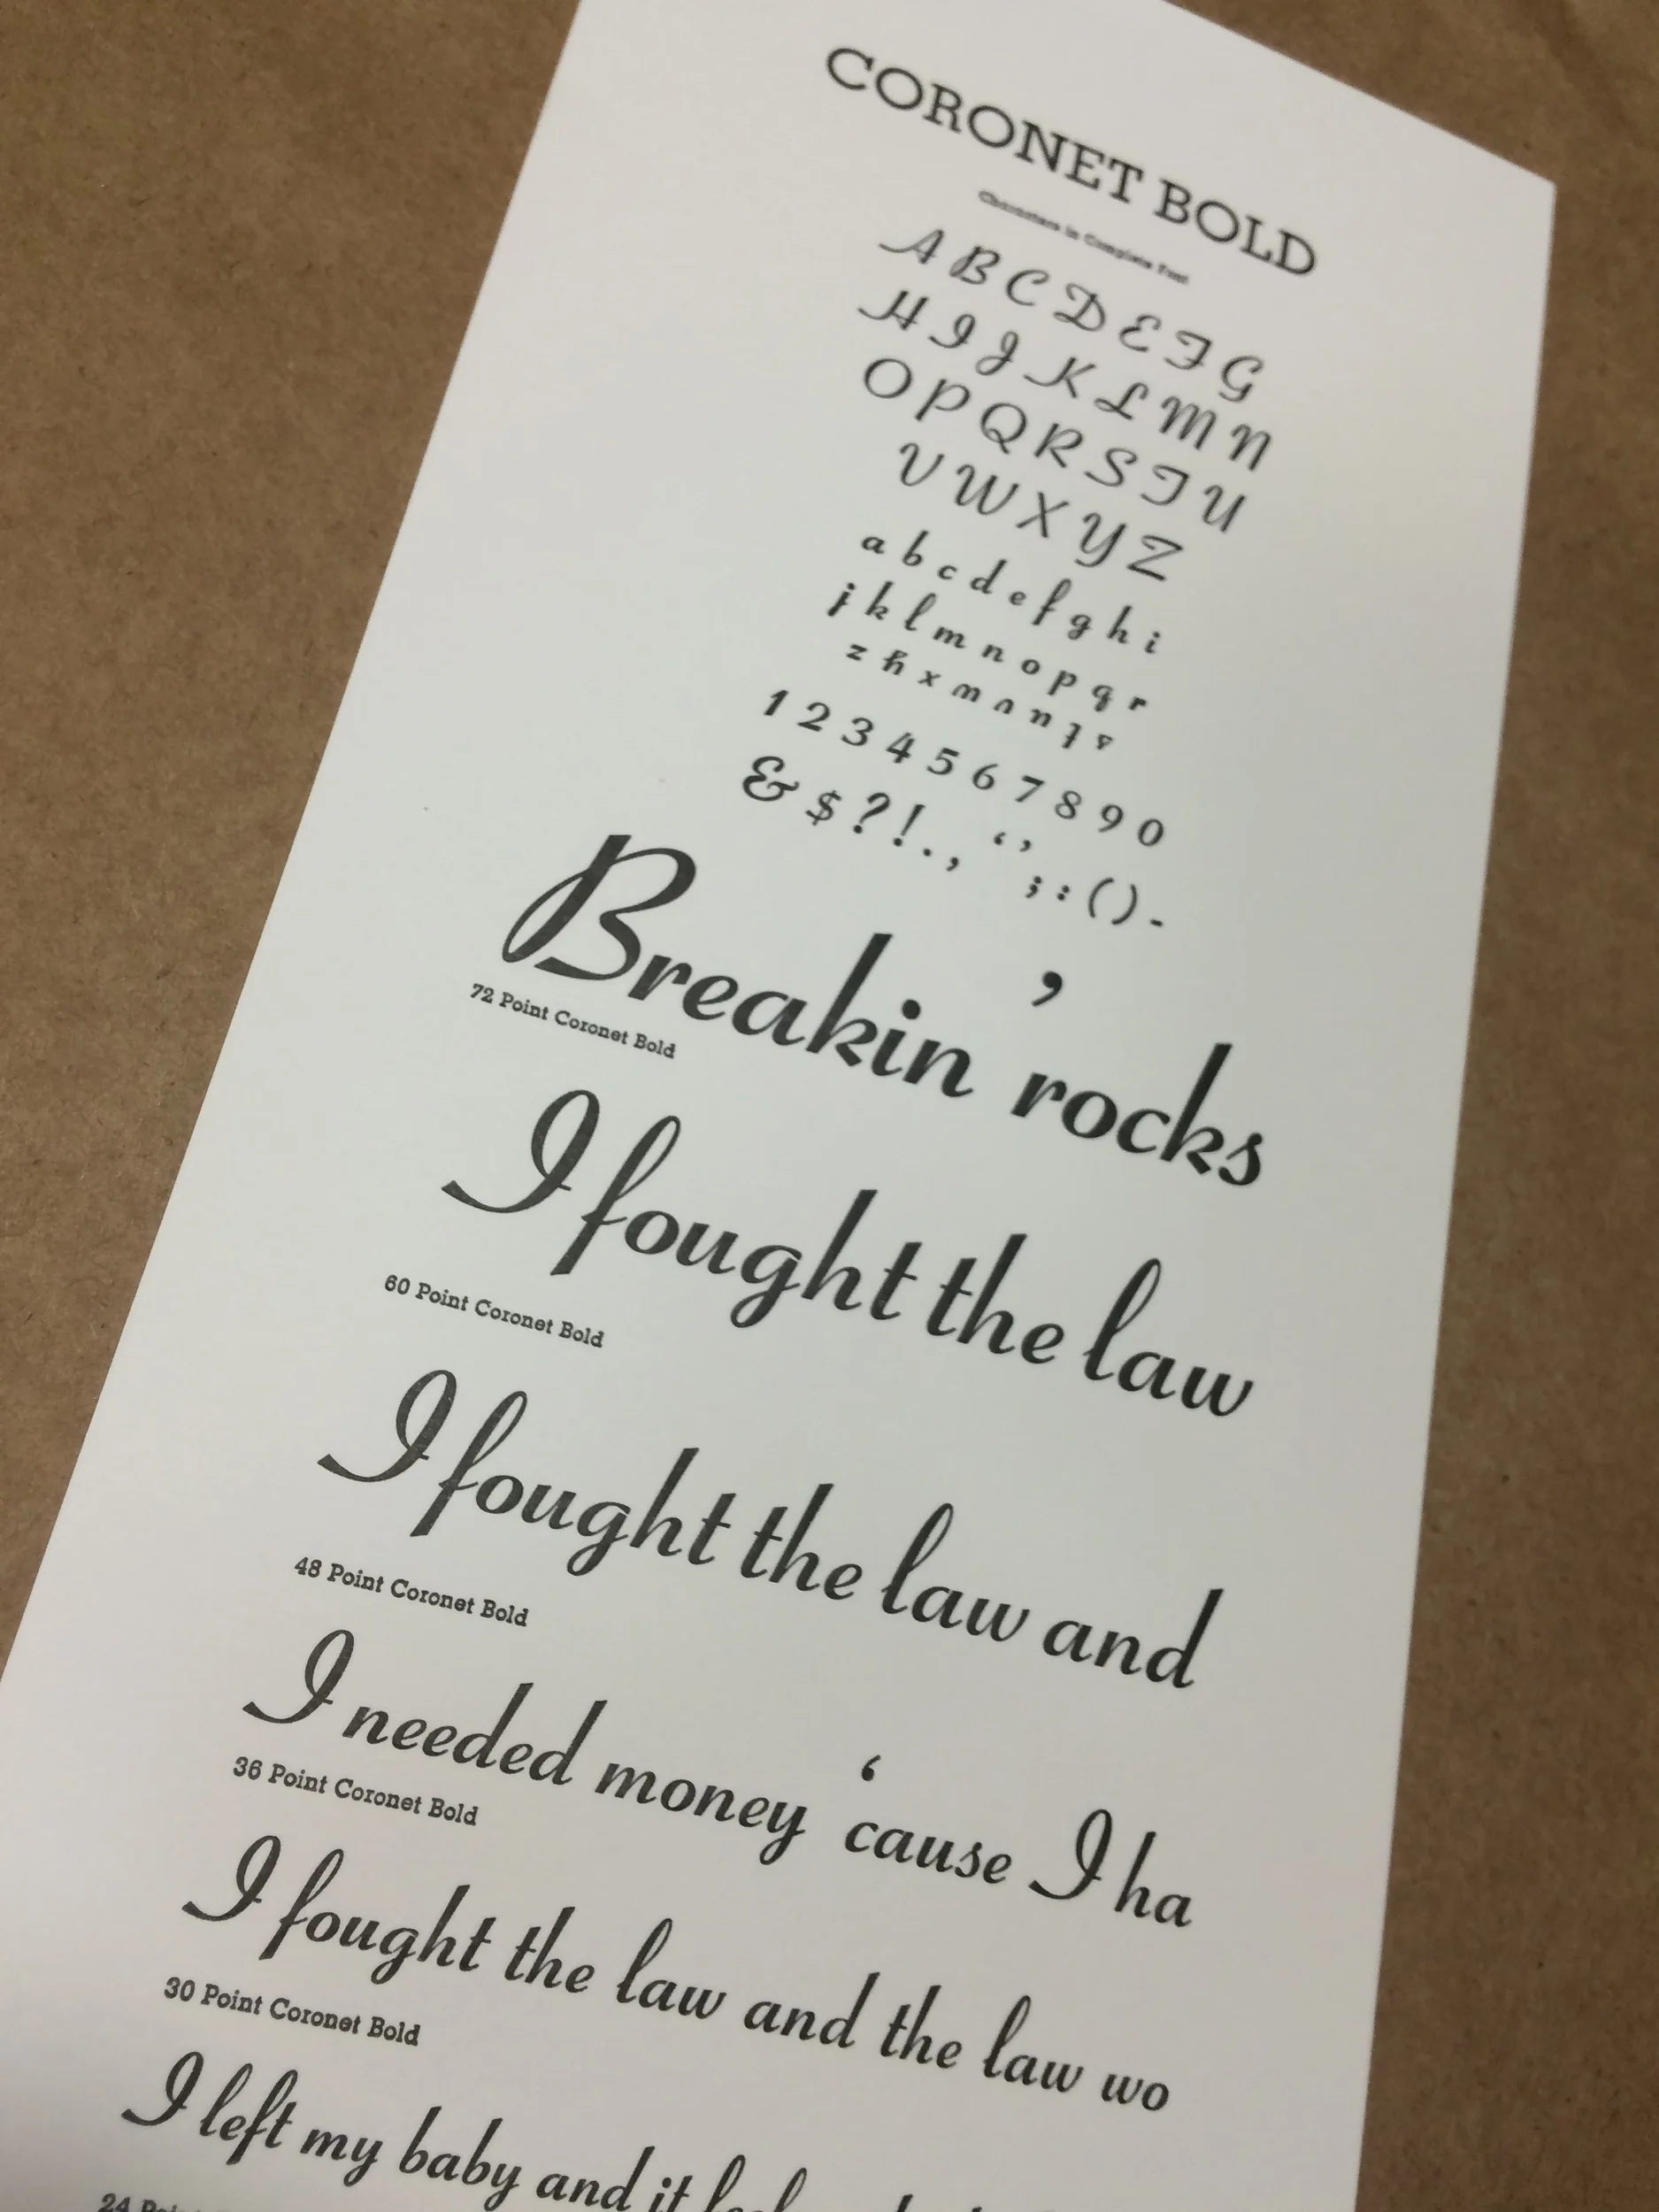 CORONET BOLD
Characters in Complete Font
A B C D E F G
H I J K L M N
O P Q R S T U
V W X Y Z
a b c d e f g h i
j k l m n o p q r
z y x w v u t s
1 2 3 4 5 6 7 8 9 0
& $ ? ! . , ‘ ’ ; : ( ) -
Breakin’ rocks
72 Point Coronet Bold
I fought the law
60 Point Coronet Bold
I fought the law and
48 Point Coronet Bold
I needed money ‘cause I ha
36 Point Coronet Bold
I fought the law and the law wo
30 Point Coronet Bold
I left my baby and it
24